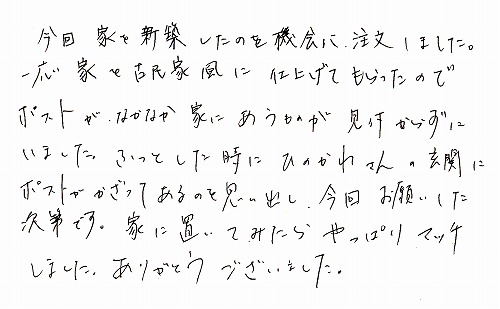 今回 家を新築したのを機会に、注文しました。
一応 家を古民家風に 仕上げてもらったので
ポストが、なかなか 家にあうものが 見付からずに
いました。ふっとした時に ひのかわさんの玄関に
ポストがかざってあるのを思い出し、今回 お願いした
次第です。家に置いてみたら やっぱり マッチ
しました。ありがとう ございました。